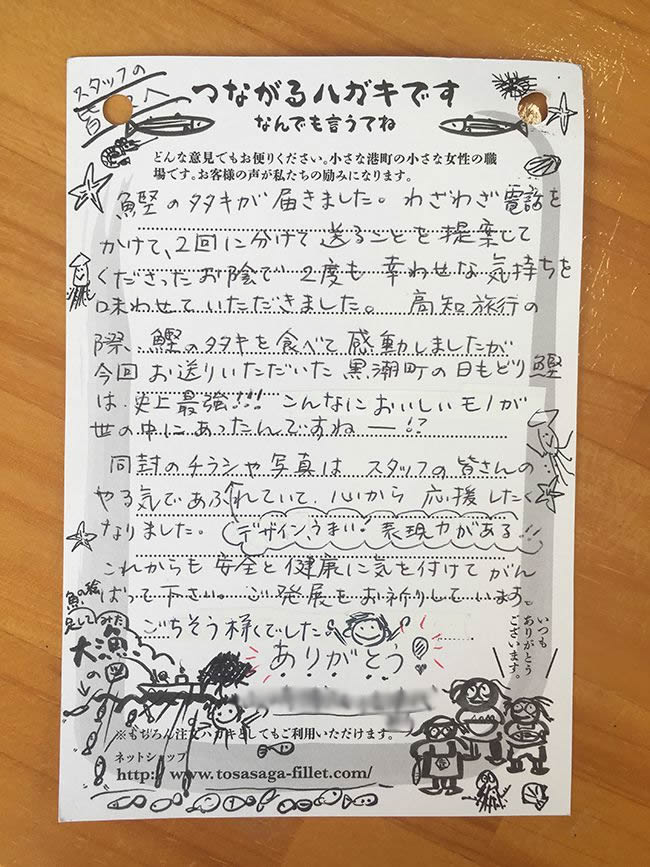 スタッフの
皆 へ
つながるハガキです
なんでも言うてね
どんな意見でもお便りください。小さな港町の小さな女性の職
場です。お客様の声が私たちの励みになります。
鰹のタタキが届きました。わざわざ電話を
かけて、2回に分けて送ることを提案して
くださったお陰で2度も幸わせな気持ちを
味わせていただきました。高知旅行の
際、鰹のタタキを食べて感動しましたが
今回お送りいただいた黒潮町の日もどり鰹
は、史上最強!!! こんなにおいしいモノが
世の中にあったんですねー!?
同封のチラシや写真は スタッフの皆さんの
やる気であふれていて、心から応援したく
なりました。デザイン、うまい!表現力がある!!
これからも安全と健康に気を付けてがん
ばって下さい。ご発展をお祈りしています。
ごちそう様でした。
ありがとう
魚の絵
足してみた
大漁
の
いつも
ありがとう
ございます。
※もちろん注文ハガキとしてもご利用いただけます。
ネットショップ
http://www.tosasaga-fillet.com/